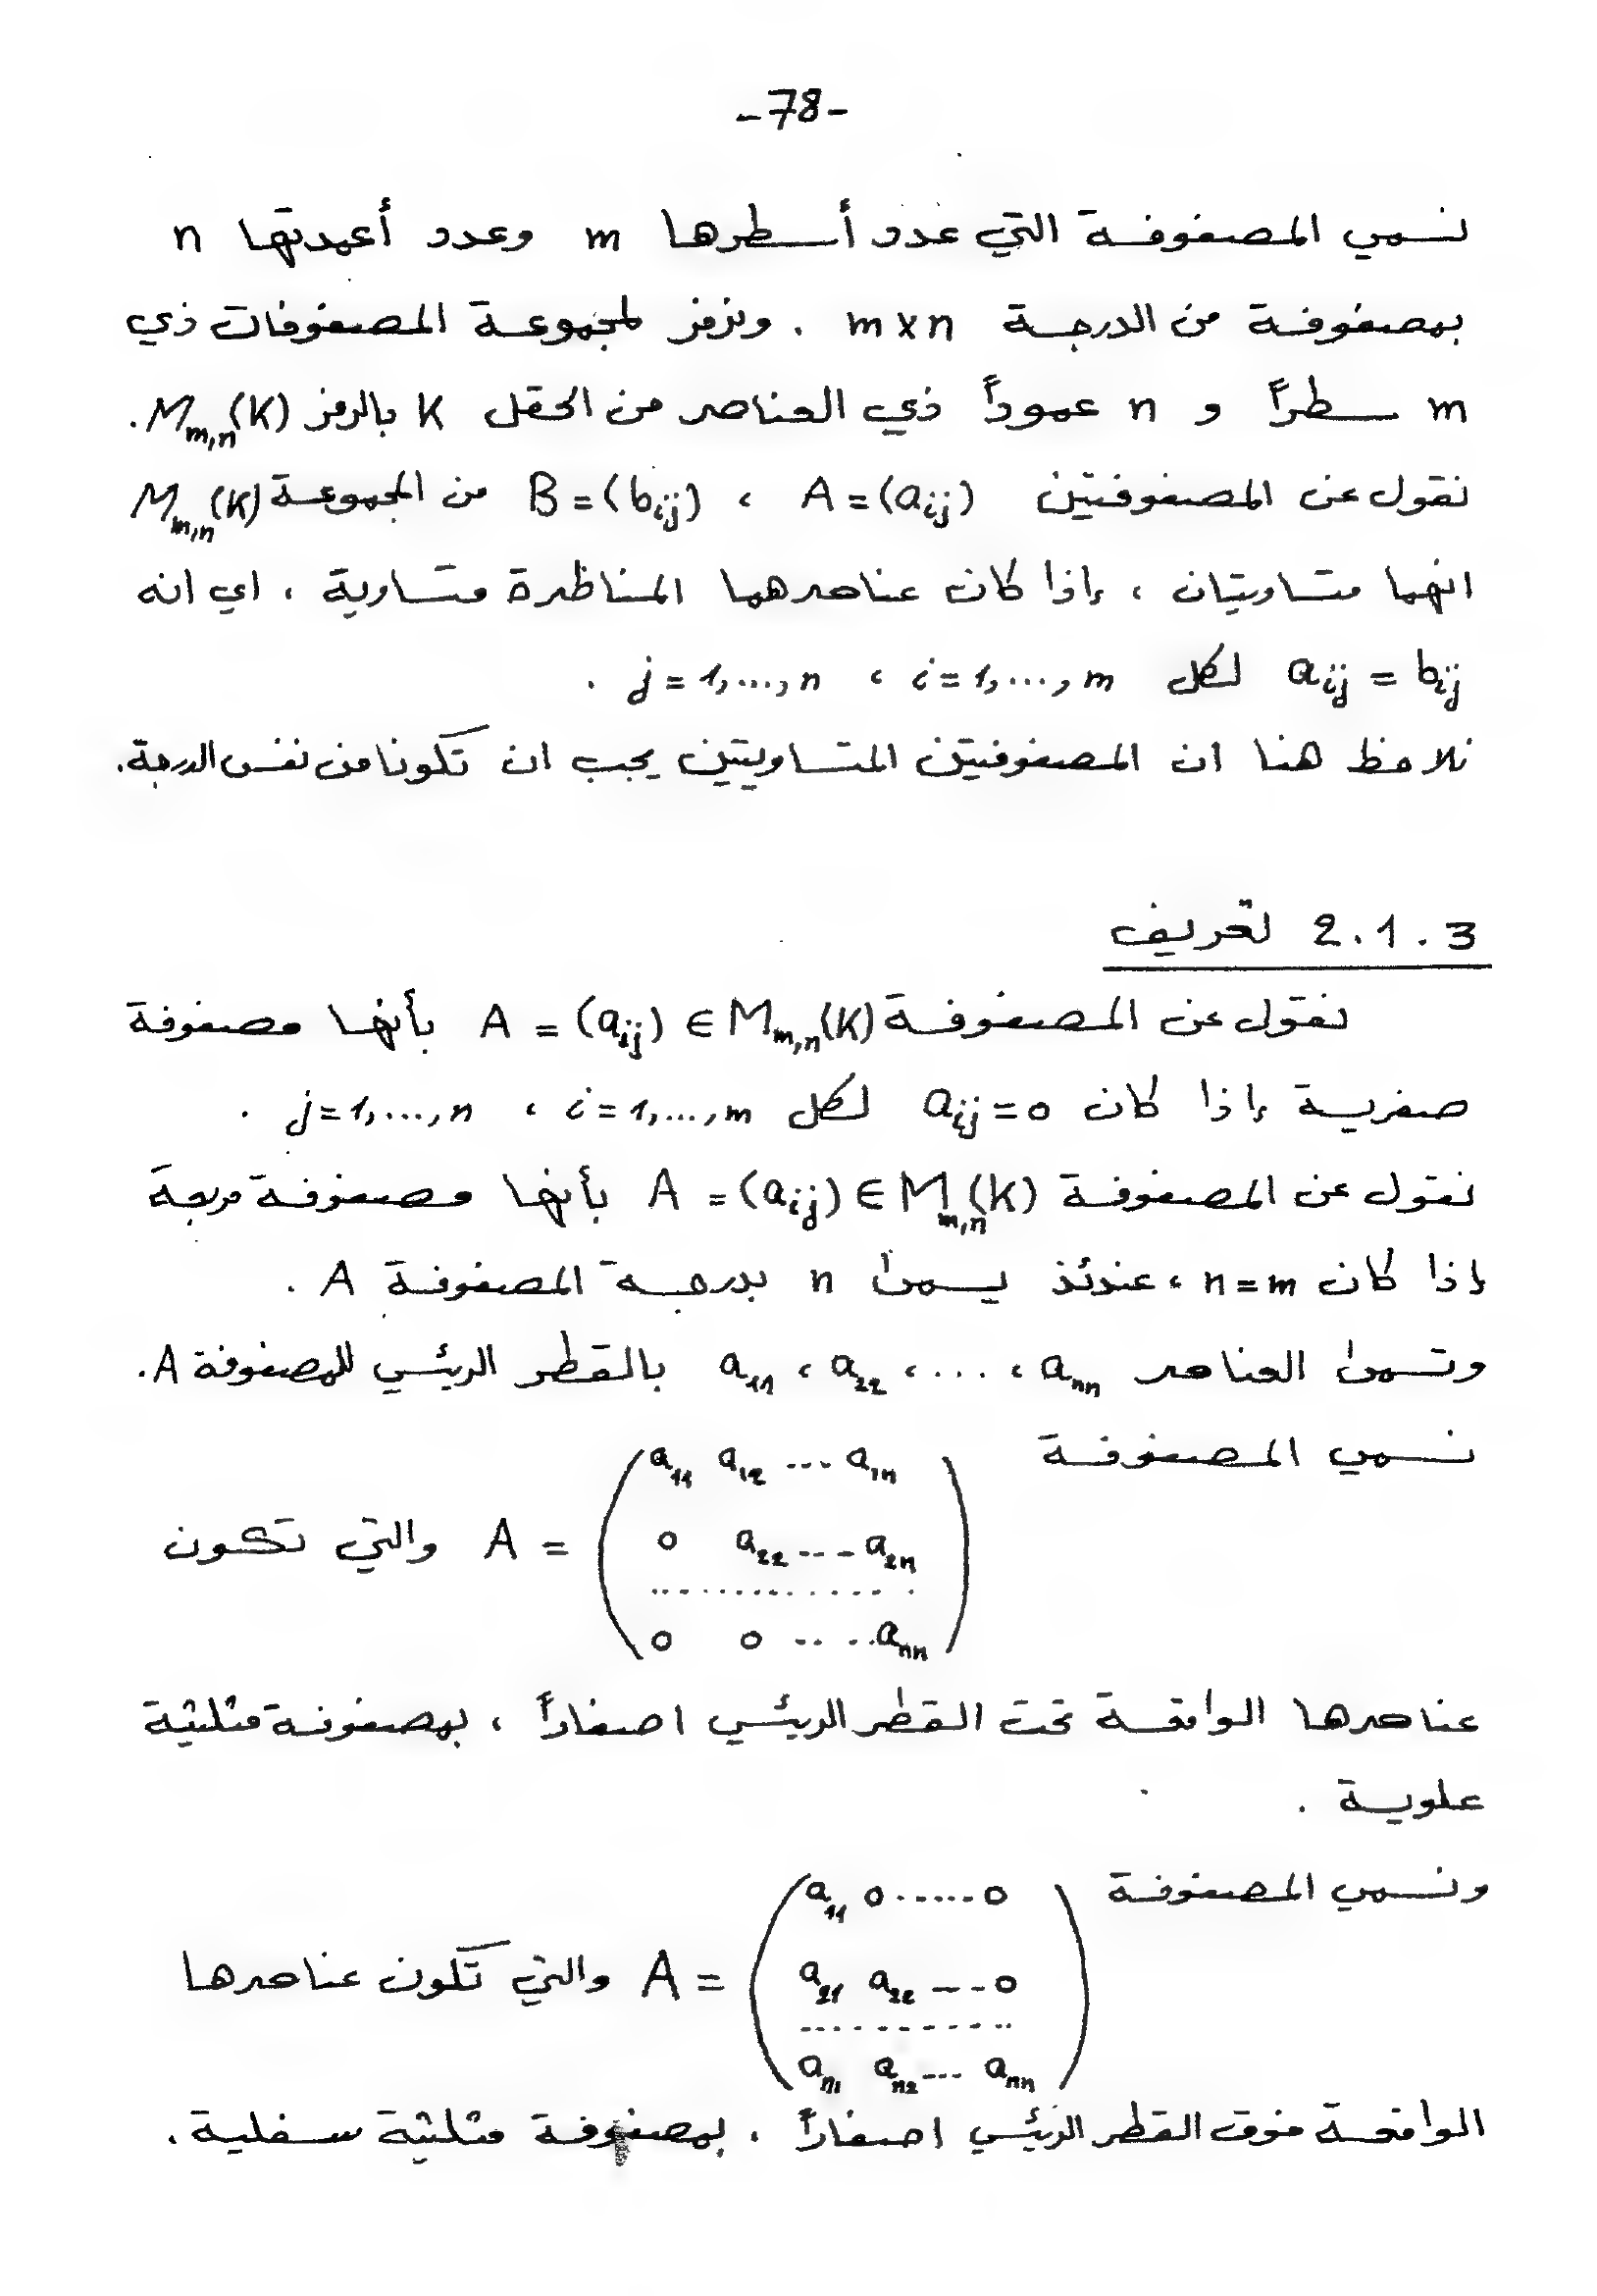 -78-
نسمي المصفوفة التي عدد أسطرها m وعدد أعمدتها n
بمصفوفة من الدرجة m x n . ونرمز لمجموعة المصفوفات ذي
m سطراً و n عموداً ذي العناصر من الحقل K بالرمز M_{m,n}(K).
نقول عن المصفوفتين A = (a_{ij}) ، B = (b_{ij}) من المجموعة M_{m,n}(K)
انهما متساويتان ، إذا كان عناصرهما المتناظرة متساوية ، اي انه
a_{ij} = b_{ij} لكل i = 1,...,m ، j = 1,...,n .
نلاحظ هنا ان المصفوفتين المتساويتين يجب ان تكونا من نفس الدرجة.
2.1.3 تعريف
نقول عن المصفوفة A = (a_{ij}) ∈ M_{m,n}(K) بأنها مصفوفة
صفرية إذا كان a_{ij} = 0 لكل i = 1,...,m ، j = 1,...,n .
نقول عن المصفوفة A = (a_{ij}) ∈ M_{m,n}(K) بأنها مصفوفة مربعة
إذا كان n = m ، عندئذ يسمى n بدرجة المصفوفة A .
وتسمى العناصر a_{11} ، a_{22} ، ... ، a_{nn} بالقطر الرئيسي للمصفوفة A.
نسمي المصفوفة
a_{11} a_{12} --- a_{1n}
A = ( 0 a_{22} ---- a_{2n} ) والتي تكون
...............
0 0 -- -- a_{nn}
عناصرها الواقعة تحت القطر الرئيسي اصفاراً ، بمصفوفة مثلثية
علوية .
ونسمي المصفوفة
a_{11} 0 ------ 0
A = ( a_{21} a_{22} --- 0 ) والتي تكون عناصرها
...........
a_{n1} a_{n2} --- a_{nn}
الواقعة فوق القطر الرئيسي اصفاراً ، بمصفوفة مثلثية سفلية .